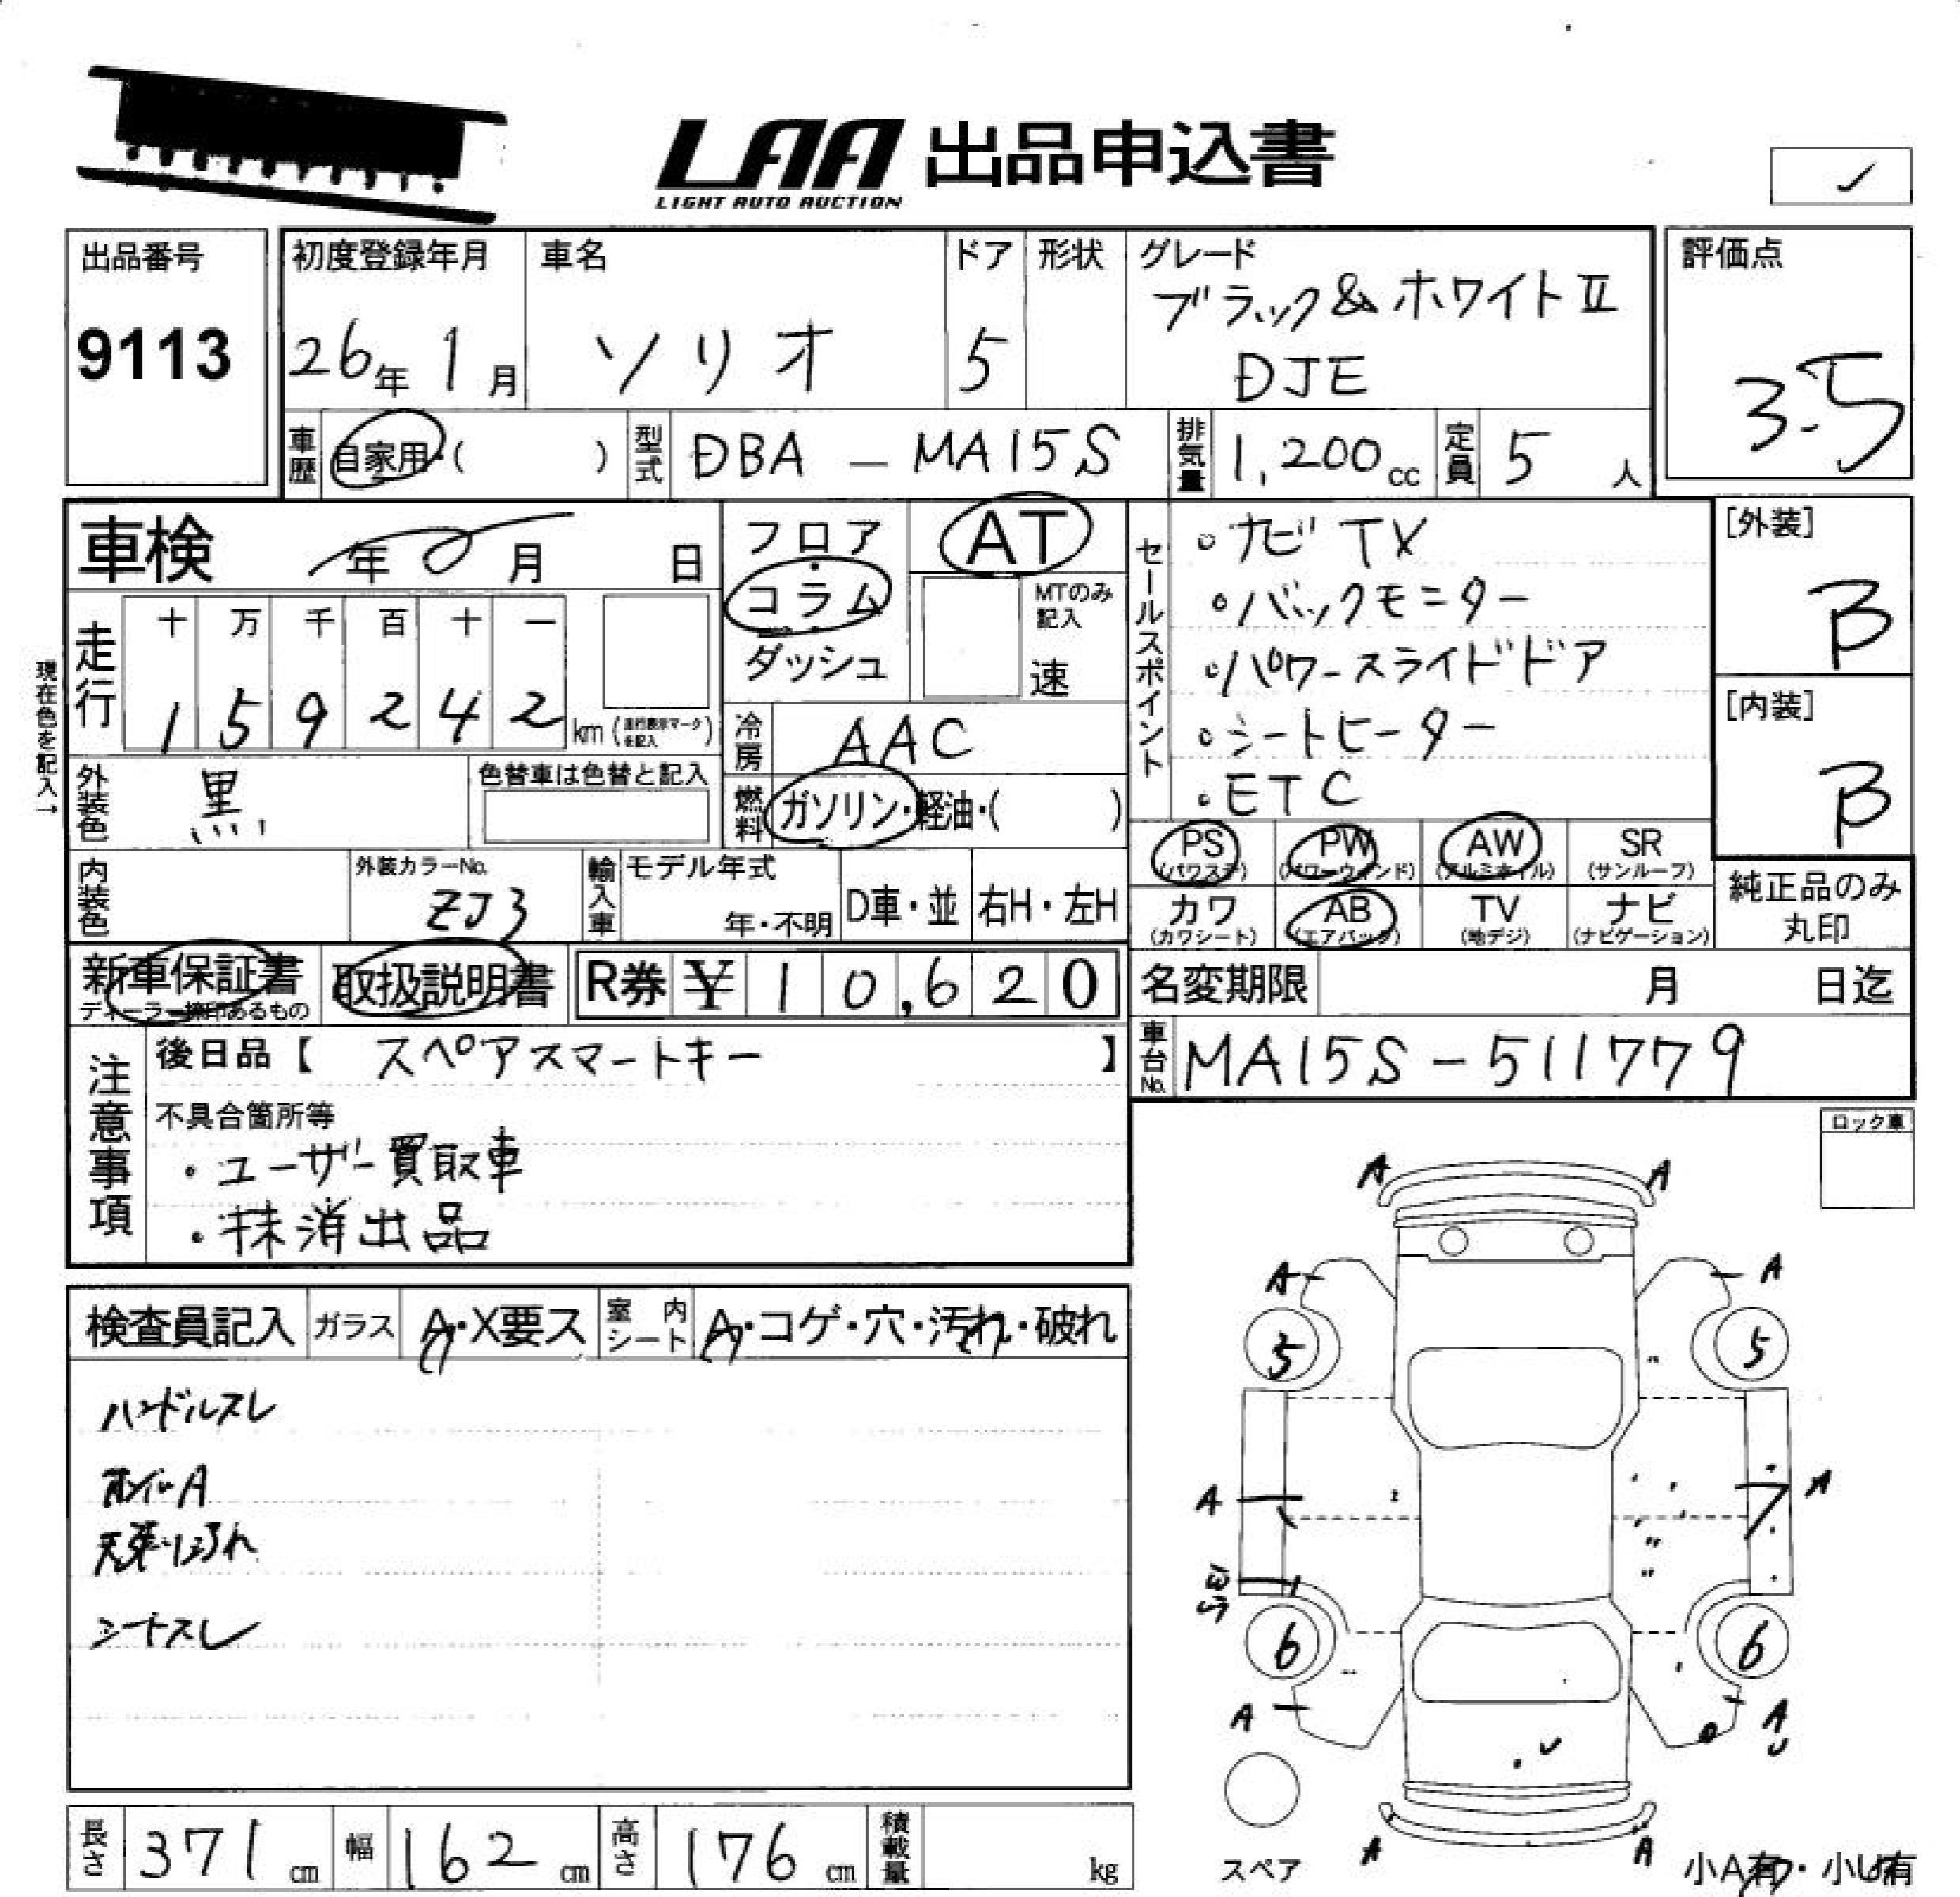 LAA 出品申込書
LIGHT AUTO AUCTION
✓
出品番号
9113
初度登録年月
26年 1月
車名
ソリオ
ドア
5
形状
グレード
ブラック&ホワイトⅡ
DJE
評価点
3.5
車歴
自家用・( )
型式
DBA - MA15S
排気量
1,200cc
定員
5人
車検 年 月 日
フロア・
コラム
・
ダッシュ
AT
MTのみ
記入
速
セールスポイント
・ナビTV
・バックモニター
・パワースライドドア
・シートヒーター
・ETC
[外装]
B
[内装]
B
現在色を記入→
走行
十 万 千 百 十 一
1 5 9 2 4 2
km (走行表示マークを記入)
冷房
AAC
外装色
黒
色替車は色替と記入
燃料
ガソリン・軽油・( )
PS (パワステ)
PW (パワーウインド)
AW (アルミホイル)
SR (サンルーフ)
カワ (カワシート)
AB (エアバッグ)
TV (地デジ)
ナビ (ナビゲーション)
純正品のみ
丸印
内装色
外装カラーNo.
ZJ3
輸入車
モデル年式
年・不明
D車・並
右H・左H
新車保証書
ディーラー捺印あるもの
取扱説明書
R券 ¥10,620
名変期限 月 日迄
注意事項
後日品【 スペアスマートキー 】
車台No.
MA15S-511779
不具合箇所等
・ユーザー買取車
・抹消出品
ロック車
検査員記入
ガラス
A・X要ス
室内シート
A・コゲ・穴・汚れ・破れ
ハンドルスレ
ホイルA
天張り汚れ
シートスレ
A A
A A
5 5
A A
6 6
A A
U
U
A A
スペア
小A有・小U有
長さ
371cm
幅
162cm
高さ
176cm
積載量
kg